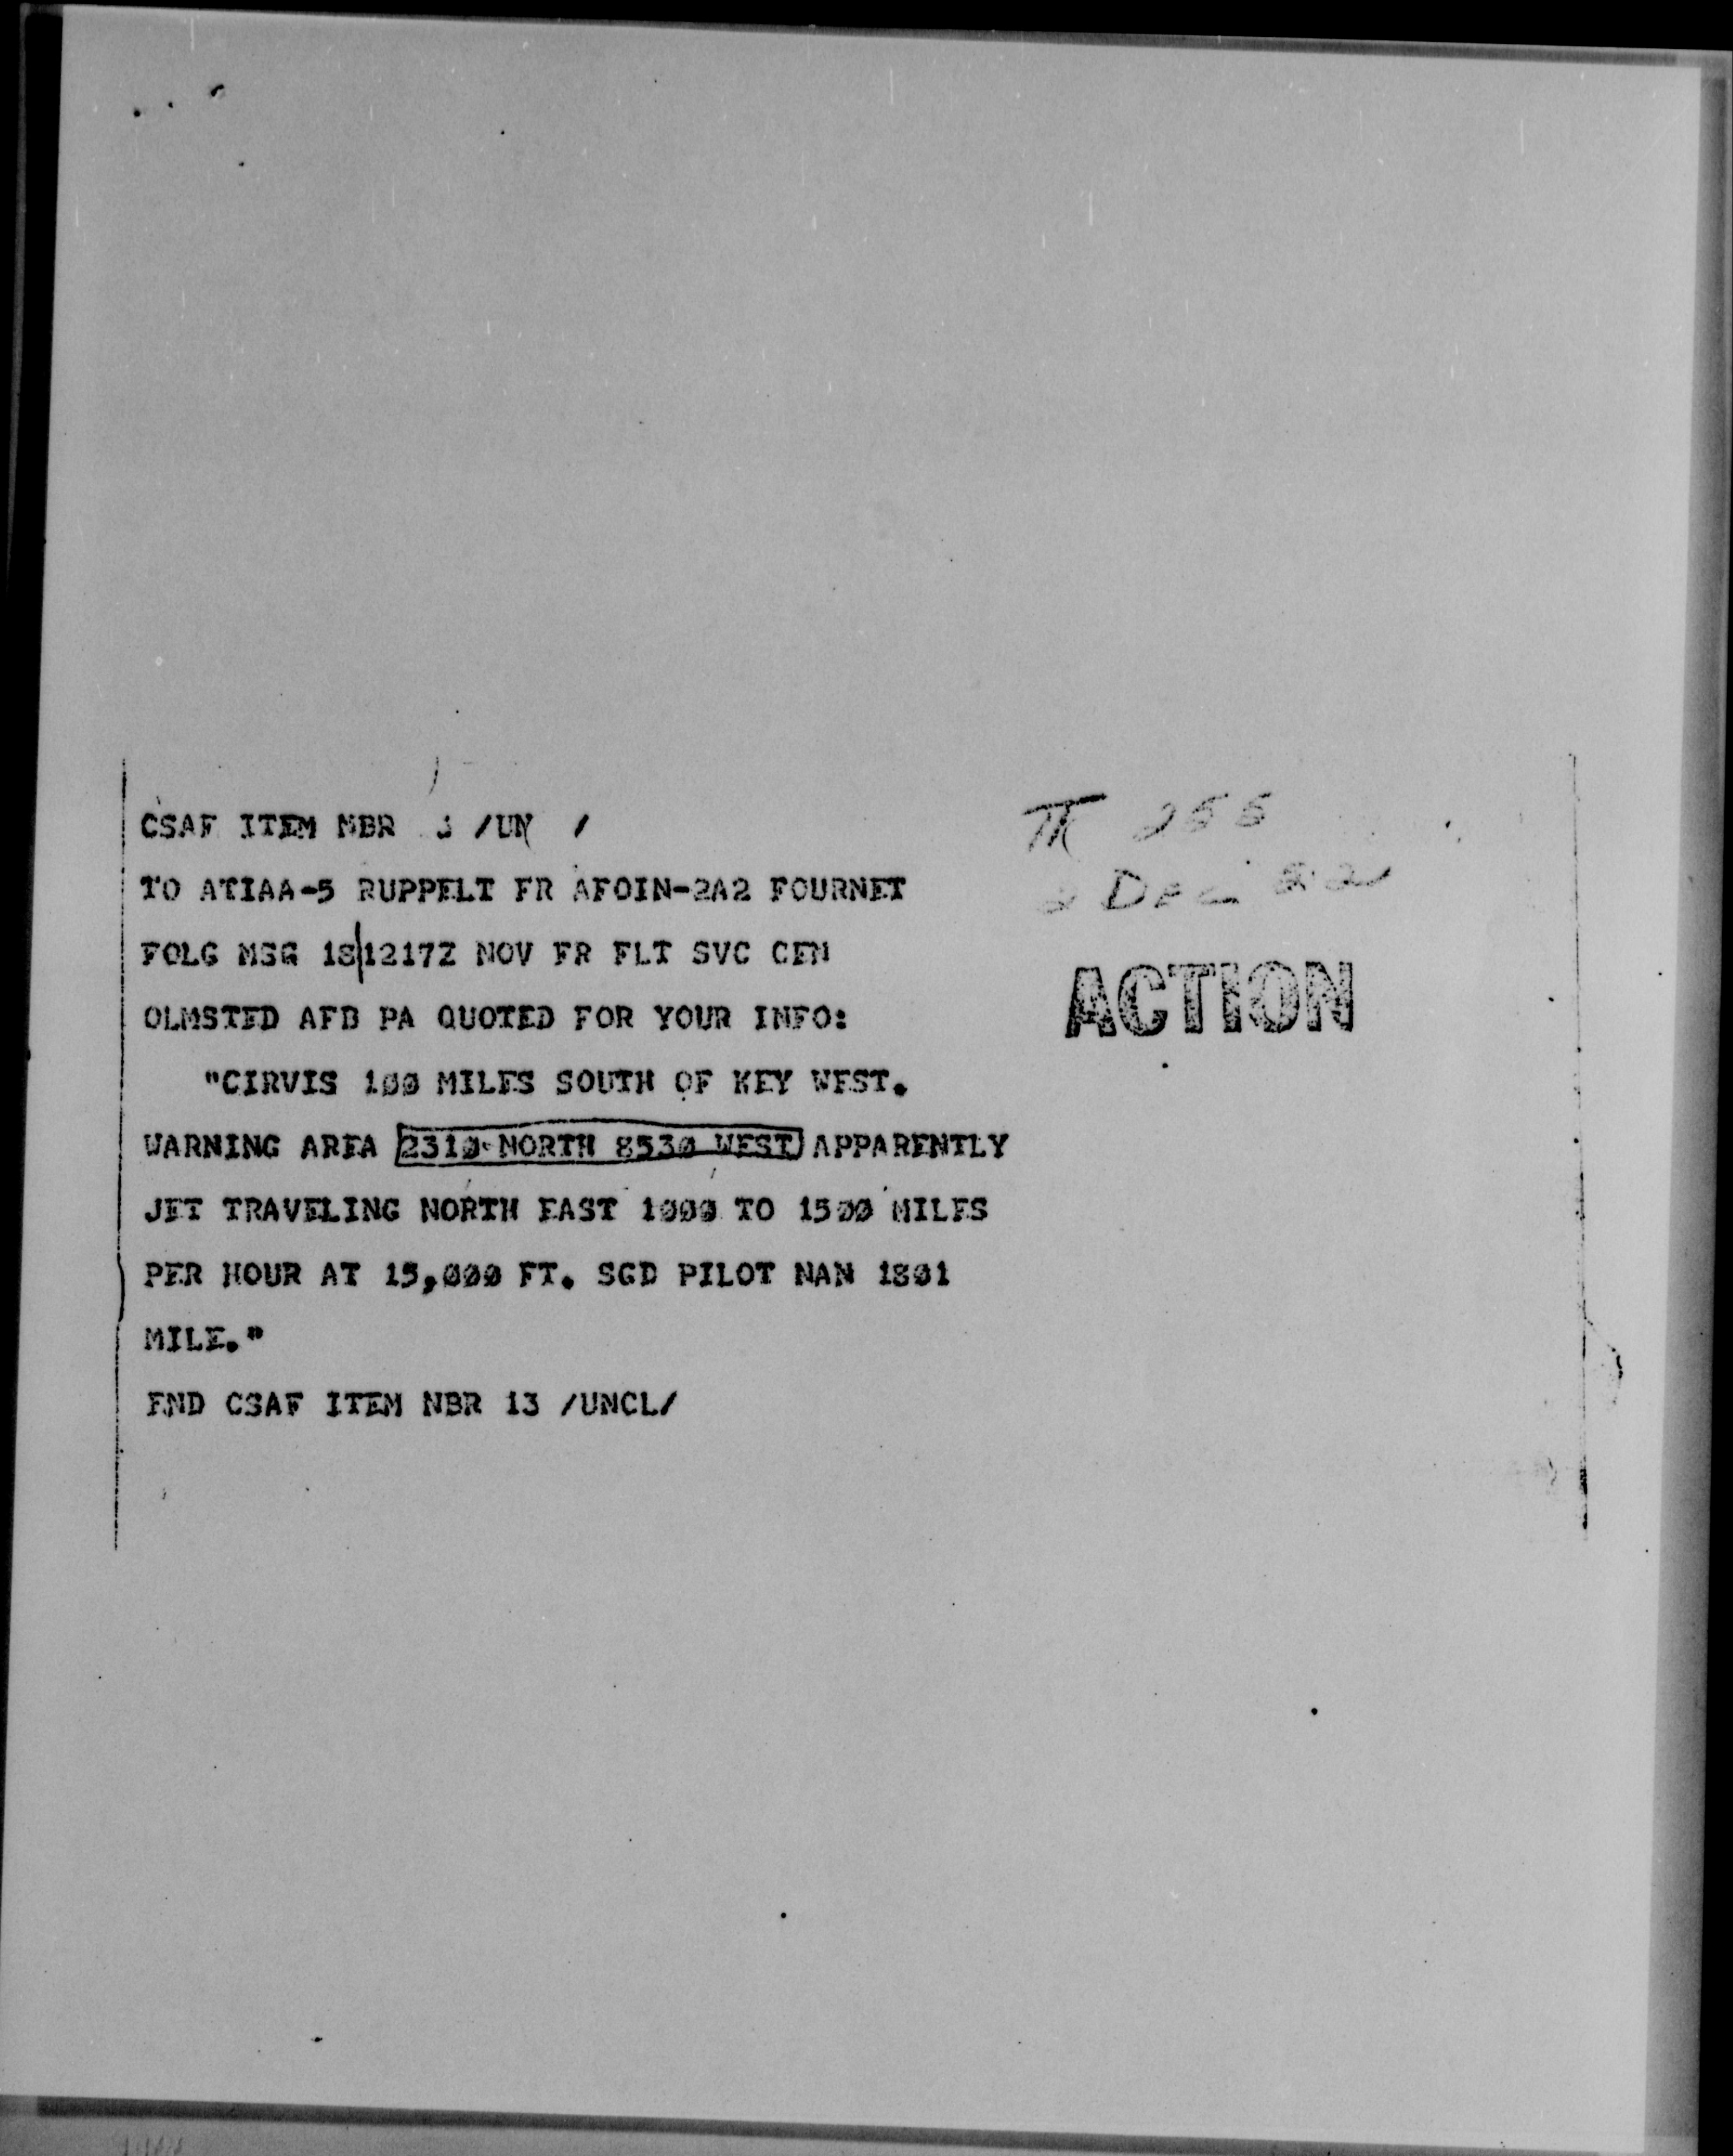 CSAF ITEM NBR 3 /UN /
TO ATIAA-5 RUPPELT FR AFOIN-2A2 FOURNET
FOLG MSG 18|1217Z NOV FR FLT SVC CEN
OLMSTED AFB PA QUOTED FOR YOUR INFO:
"CIRVIS 100 MILES SOUTH OF KEY WEST.
WARNING AREA 2310 NORTH 8530 WEST APPARENTLY
JET TRAVELING NORTH EAST 1000 TO 1500 MILES
PER HOUR AT 15,000 FT. SGD PILOT NAN 1801
MILE."
END CSAF ITEM NBR 13 /UNCL/
Dec
ACTION